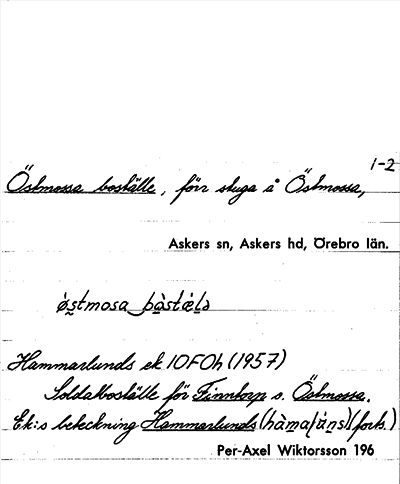 1-2
Östmossa boställe, förr stuga å Östmossa,
Askers sn, Askers hd, Örebro län.
Hammarlunds ek 10F0h (1957)
Soldatboställe för Finntorp s. Östmossa.
Ek:s beteckning Hammarlunds (fork.)
Per-Axel Wiktorsson 196